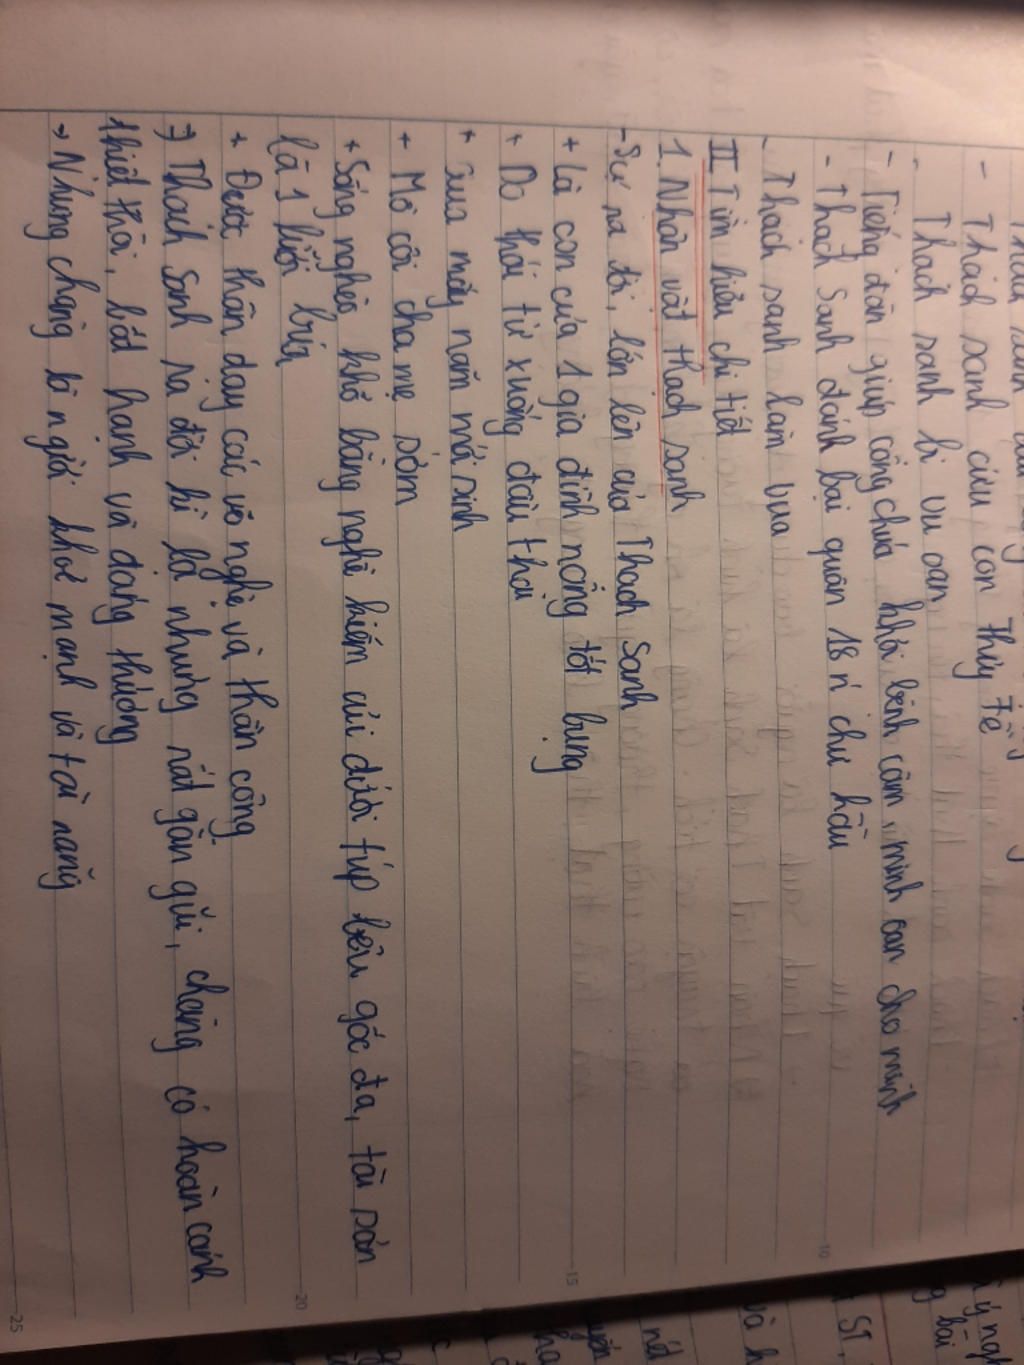 - Thạch sanh cứu con Thủy Tề
- Thạch sanh bị vu oan
- Tiếng đàn giúp công chúa khỏi bệnh câm, minh oan cho mình
- Thạch Sanh đánh bại quân 18 n' chư hầu
- Thạch sanh làm vua
II Tìm hiểu chi tiết
1. Nhân vật thạch sanh
- Sự ra đời, lớn lên của Thạch Sanh
+ Là con của 1 gia đình nông tốt bụng
+ Do thái tử xuống đầu thai
+ Qua mấy năm mới sinh
+ Mồ côi cha mẹ sớm
+ Sống nghèo khổ bằng nghề kiếm củi dưới túp lều gốc đa, tài sản
là 1 lưỡi búa
+ Được thần dạy các võ nghệ và thần công
=) Thạch Sanh ra đời kì lạ nhưng rất gần gũi, chàng có hoàn cảnh
thiệt thòi, bất hạnh và đáng thương
→ Nhưng chàng là người khoẻ mạnh và tài năng
10
15
20
25